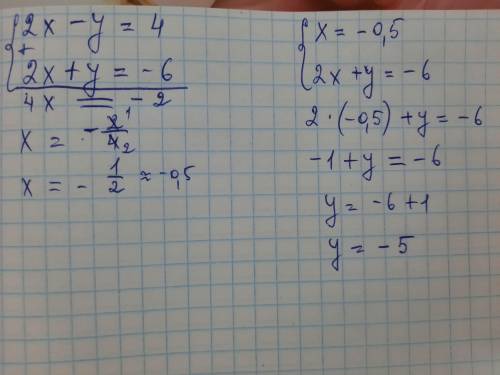 2x - y = 4
+
2x + y = -6
4x = -2
x = -2/4 1 2
x = -1/2 = -0,5
x = -0,5
2x + y = -6
2 · (-0,5) + y = -6
-1 + y = -6
y = -6 + 1
y = -5